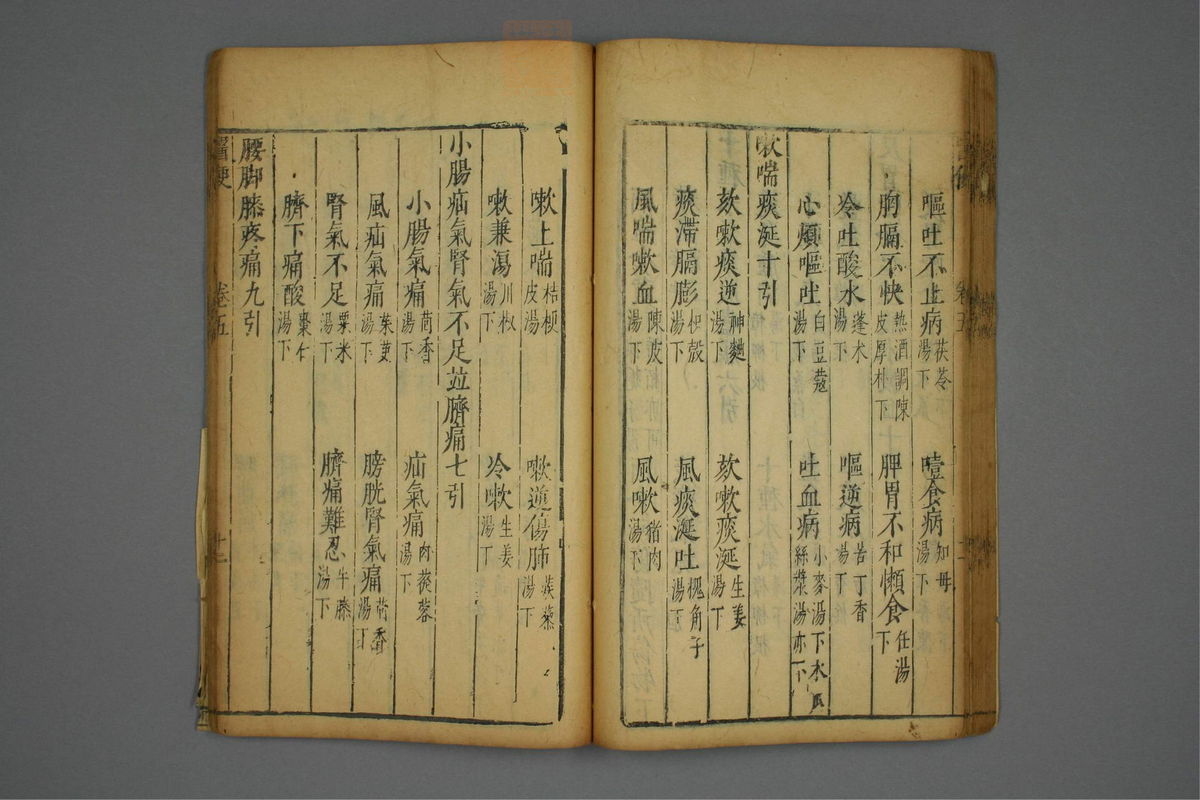 嘔吐不止病茯苓湯下 噎食病知母湯下
胸膈不快熱酒調陳皮厚朴下 脾胃不和懶食任湯下
冷吐酸水蓬朮湯下 嘔逆病苦丁香湯下
心煩嘔吐白豆蔻湯下 吐血病小麥湯下水瓜絲漿湯亦下
嗽喘痰涎十引
欬嗽痰逆神麯湯下 欬嗽痰涎生姜湯下
痰滯膈膨枳殼湯下 風痰涎吐槐角子湯下
風喘嗽血陳皮湯下 風嗽猪肉湯下
嗽上喘桔梗皮湯 嗽逆傷肺蒺藜湯下
嗽兼瀉川椒湯下 冷嗽生姜湯下
小腸疝氣腎氣不足並臍痛七引
小腸氣痛茴香湯下 疝氣痛肉蓯蓉湯下
風疝氣痛茱萸湯下 膀胱腎氣痛茴香湯下
腎氣不足粟米湯下 臍痛難忍牛膝湯下
臍下痛酸棗仁湯下
腰脚膝疼痛九引
卷五
十七